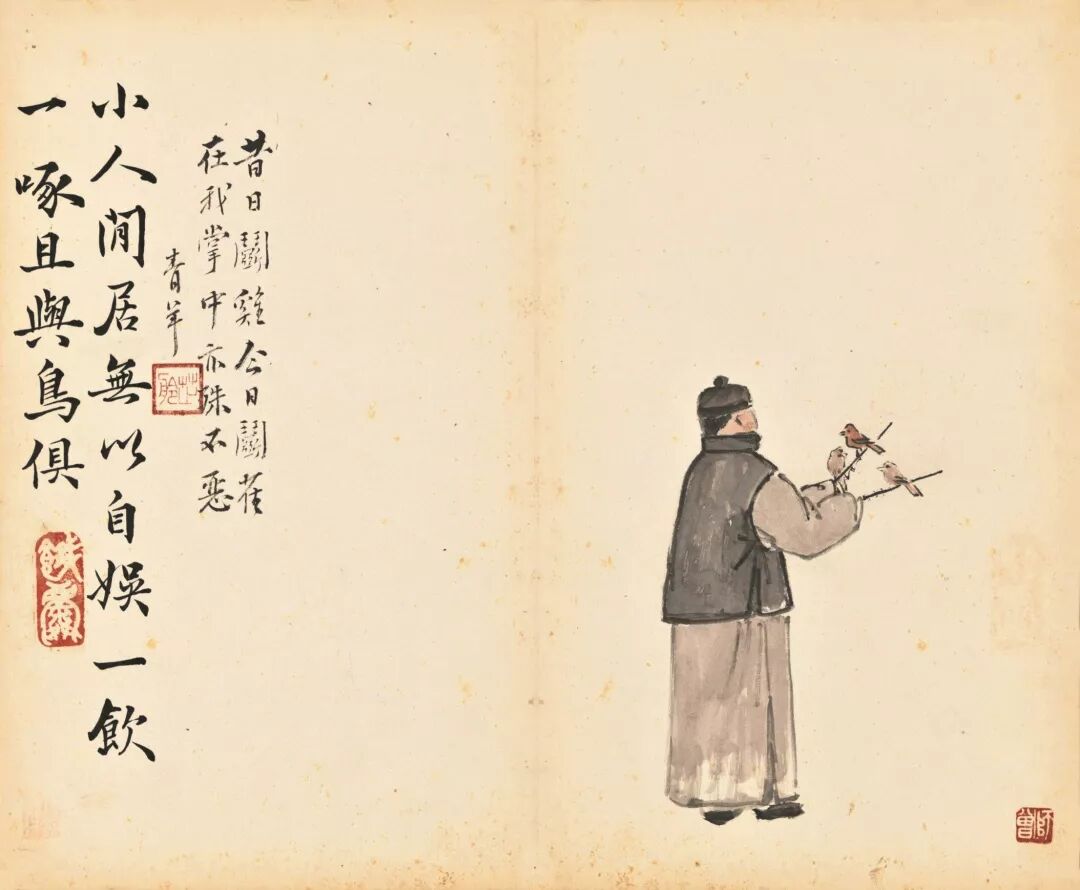 師曾
昔日鬭雞今日鬭雀
在我掌中亦殊不惡
青羊
小人閒居無以自娛一飲
一啄且與鳥俱